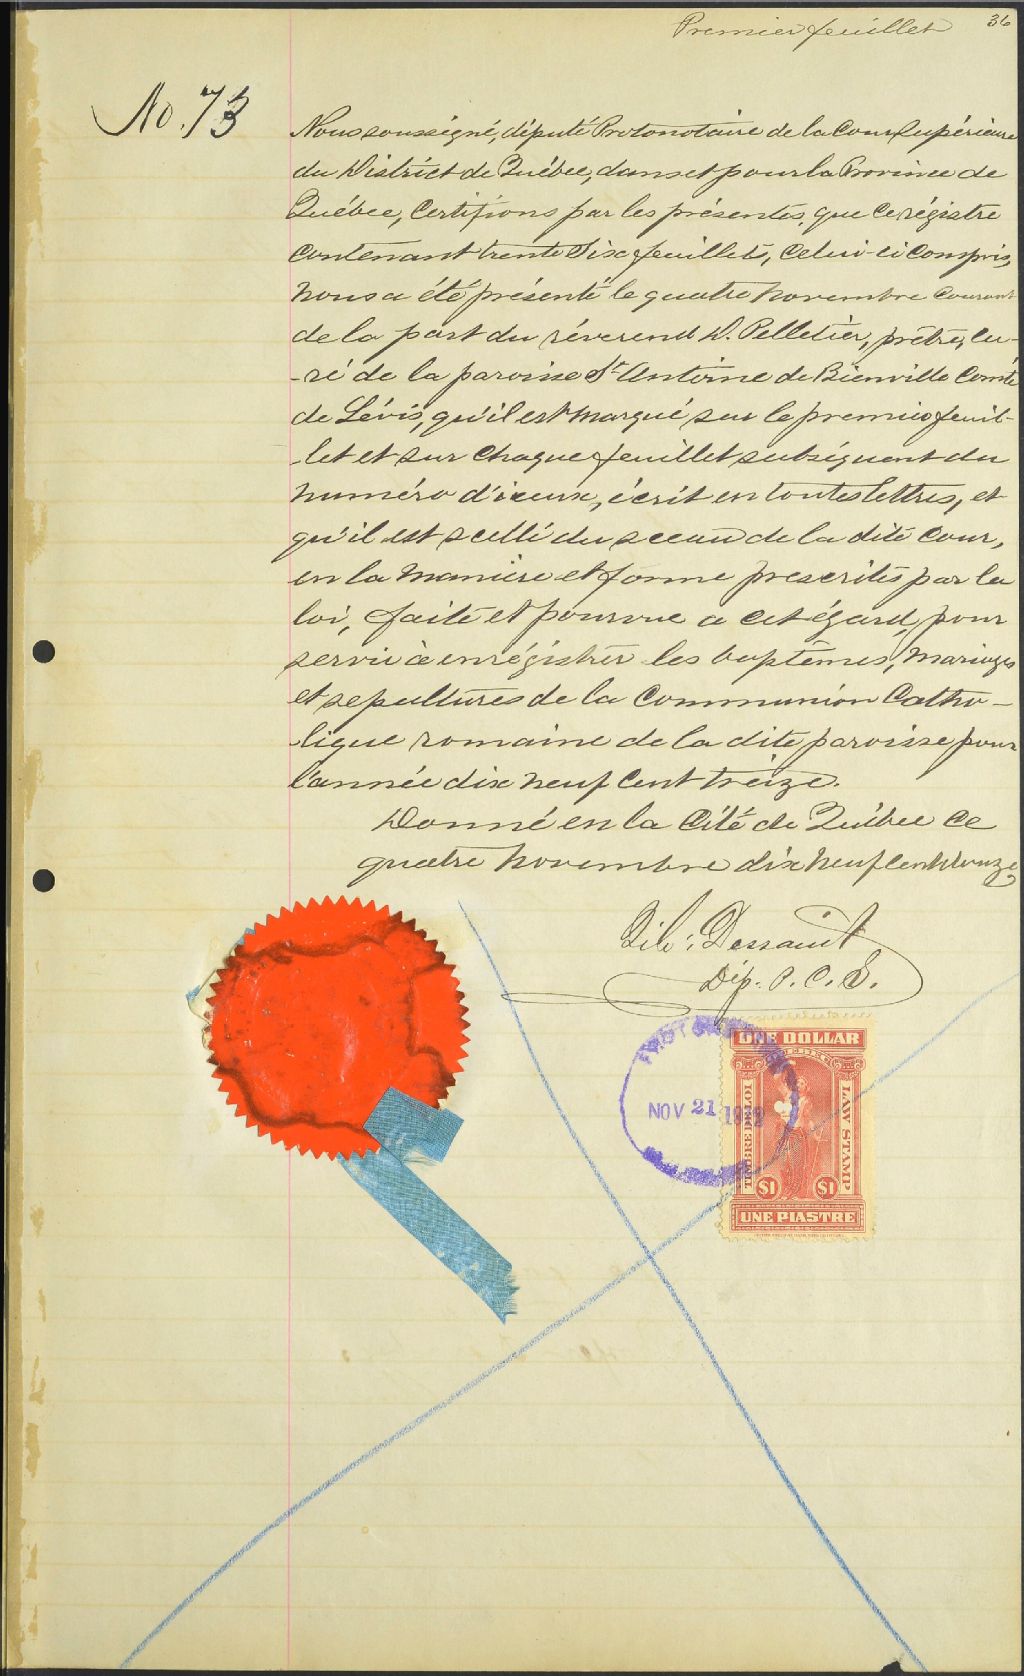 Premier feuillet
36
No. 73
Nous soussigné, député Protonotaire de la Cour Supérieure
du District de Québec, dans et pour la Province de
Québec, Certifions par les présentes, que ce régistre
contenant trente Six feuillets, celui-ci compris,
nous a été présenté le quatre novembre courant
de la part du réverend D. Pelletier, prêtre, cu-
-ré de la paroisse St Antoine de Bienville Comté
de Lévis, qu'il est marqué sur le premier feuil-
-let et sur chaque feuillet subséquent du
numéro d'iceux, écrit en toutes lettres, et
qu'il est scellé du sceau de la dite Cour,
en la manière et forme prescrites par la
loi, faite et pourvue a cet égard, pour
servir à enrégistrer les baptêmes, Mariages
et sepultures de la Communion Catho-
-lique romaine de la dite paroisse pour
l'année dix neuf cent treize.
Donné en la Cité de Québec ce
quatre novembre dix neuf cent douze
Dessault
Dép. P. C. S.
NOV 21
ONE DOLLAR
TIMBRE DE LOI
LAW STAMP
$1 $1
UNE PIASTRE